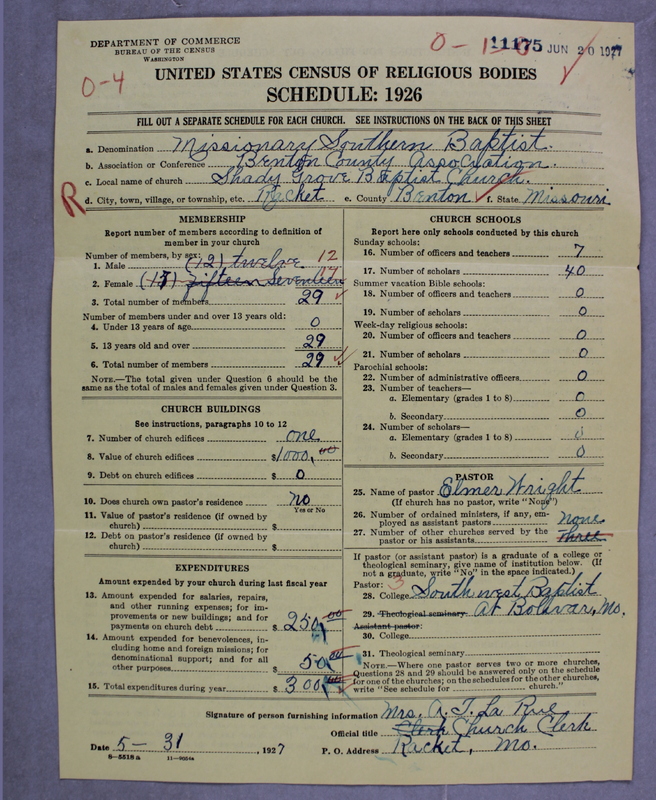 DEPARTMENT OF COMMERCE
BUREAU OF THE CENSUS
WASHINGTON
0-4
11175 JUN 20 1927
UNITED STATES CENSUS OF RELIGIOUS BODIES
SCHEDULE: 1926
FILL OUT A SEPARATE SCHEDULE FOR EACH CHURCH. SEE INSTRUCTIONS ON THE BACK OF THIS SHEET
a. Denomination Missionary Southern Baptist.
b. Association or Conference Benton County Association.
c. Local name of church Shady Grove Baptist Church.
R
d. City, town, village, or township, etc. Racket e. County Benton f. State Missouri
MEMBERSHIP
Report number of members according to definition of member in your church
Number of members, by sex:
1. Male (12) twelve 12
2. Female (17) fifteen Seventeen 17
3. Total number of members 29
Number of members under and over 13 years old:
4. Under 13 years of age 0
5. 13 years old and over 29
6. Total number of members 29
NOTE.—The total given under Question 6 should be the same as the total of males and females given under Question 3.
CHURCH BUILDINGS
See instructions, paragraphs 10 to 12
7. Number of church edifices one
8. Value of church edifices $1000.00
9. Debt on church edifices $ 0
10. Does church own pastor's residence no
Yes or No
11. Value of pastor's residence (if owned by church) $
12. Debt on pastor's residence (if owned by church) $
EXPENDITURES
Amount expended by your church during last fiscal year
13. Amount expended for salaries, repairs, and other running expenses; for improvements or new buildings; and for payments on church debt $ 250.00
14. Amount expended for benevolences, including home and foreign missions; for denominational support; and for all other purposes $ 50.00
15. Total expenditures during year $ 300.00
CHURCH SCHOOLS
Report here only schools conducted by this church
Sunday schools:
16. Number of officers and teachers 7
17. Number of scholars 40
Summer vacation Bible schools:
18. Number of officers and teachers 0
19. Number of scholars 0
Week-day religious schools:
20. Number of officers and teachers 0
21. Number of scholars 0
Parochial schools:
22. Number of administrative officers 0
23. Number of teachers—
a. Elementary (grades 1 to 8) 0
b. Secondary 0
24. Number of scholars—
a. Elementary (grades 1 to 8) 0
b. Secondary 0
PASTOR
25. Name of pastor Elmer Wright
(If church has no pastor, write "None")
26. Number of ordained ministers, if any, employed as assistant pastors none
27. Number of other churches served by the pastor or his assistants three
If pastor (or assistant pastor) is a graduate of a college or theological seminary, give name of institution below. (If not a graduate, write "No" in the space indicated.)
Pastor: 3
28. College Southwest Baptist
29. Theological seminary At Bolivar, Mo.
Assistant pastor:
30. College
31. Theological seminary
NOTE.—Where one pastor serves two or more churches, Questions 28 and 29 should be answered only on the schedule for one of the churches; on the schedules for the other churches, write "See schedule for church."
Signature of person furnishing information Mrs. A. T. La Rue
Official title Clerk Church Clerk
Date 5 - 31, 1927 P. O. Address Racket, Mo.
8-5518a 11-9054a